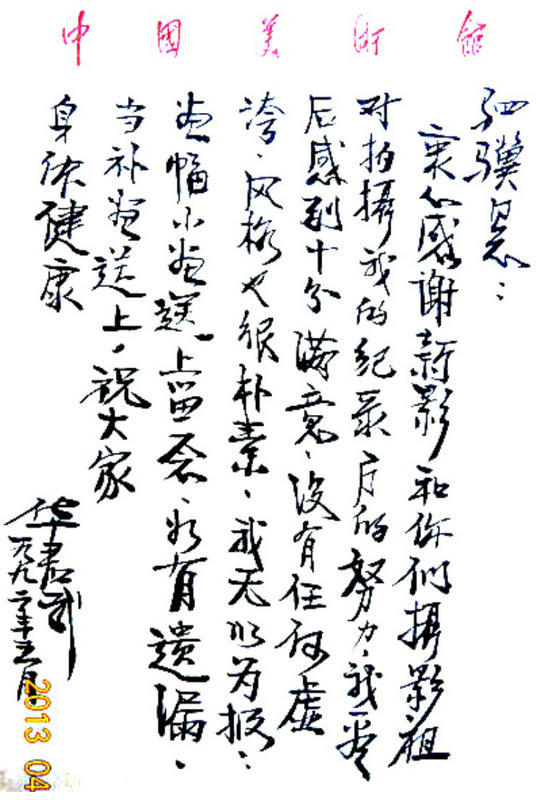 中國美術館
衷心感谢新影和你们摄影组
对拍摄我的纪录片的努力，我看
后感到十分满意，没有任何虚
誇，风格也很朴素，我无以为报：
画幅小画送上留念，如有遗漏，
当补画送上。祝大家
身体健康
华君武
一九九二年五月
2013 04